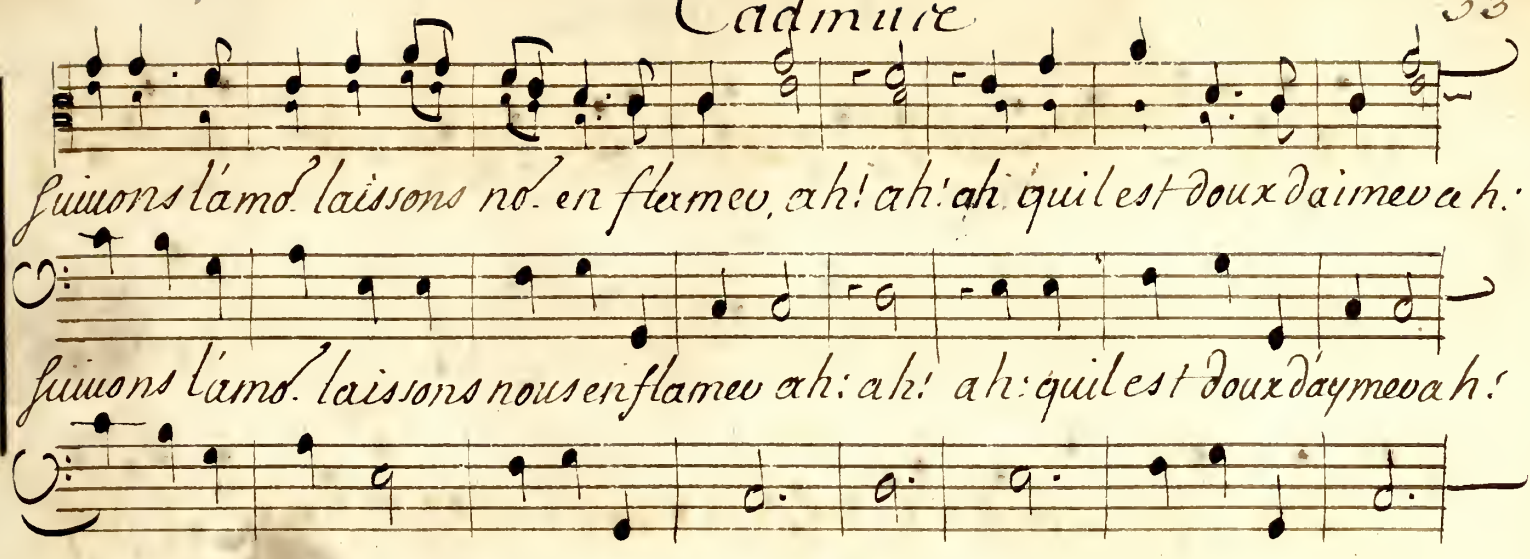 Cadmus
suiuons l'amo.r laissons no.s en flamer, ah! ah! ah quil est doux daimer ah!
suiuons l'amo.r laissons nous enflamer ah! ah! ah! quil est doux daymer ah!